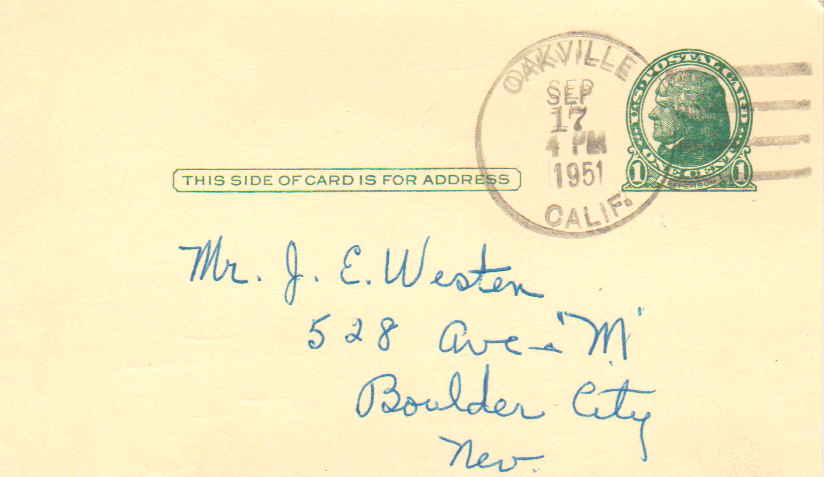 OAKVILLE
SEP
17
4 PM
1951
CALIF.
U.S. POSTAL CARD
ONE CENT
1 1
THIS SIDE OF CARD IS FOR ADDRESS
Mr. J. E. Westen
528 Ave - "M"
Boulder City
Nev.